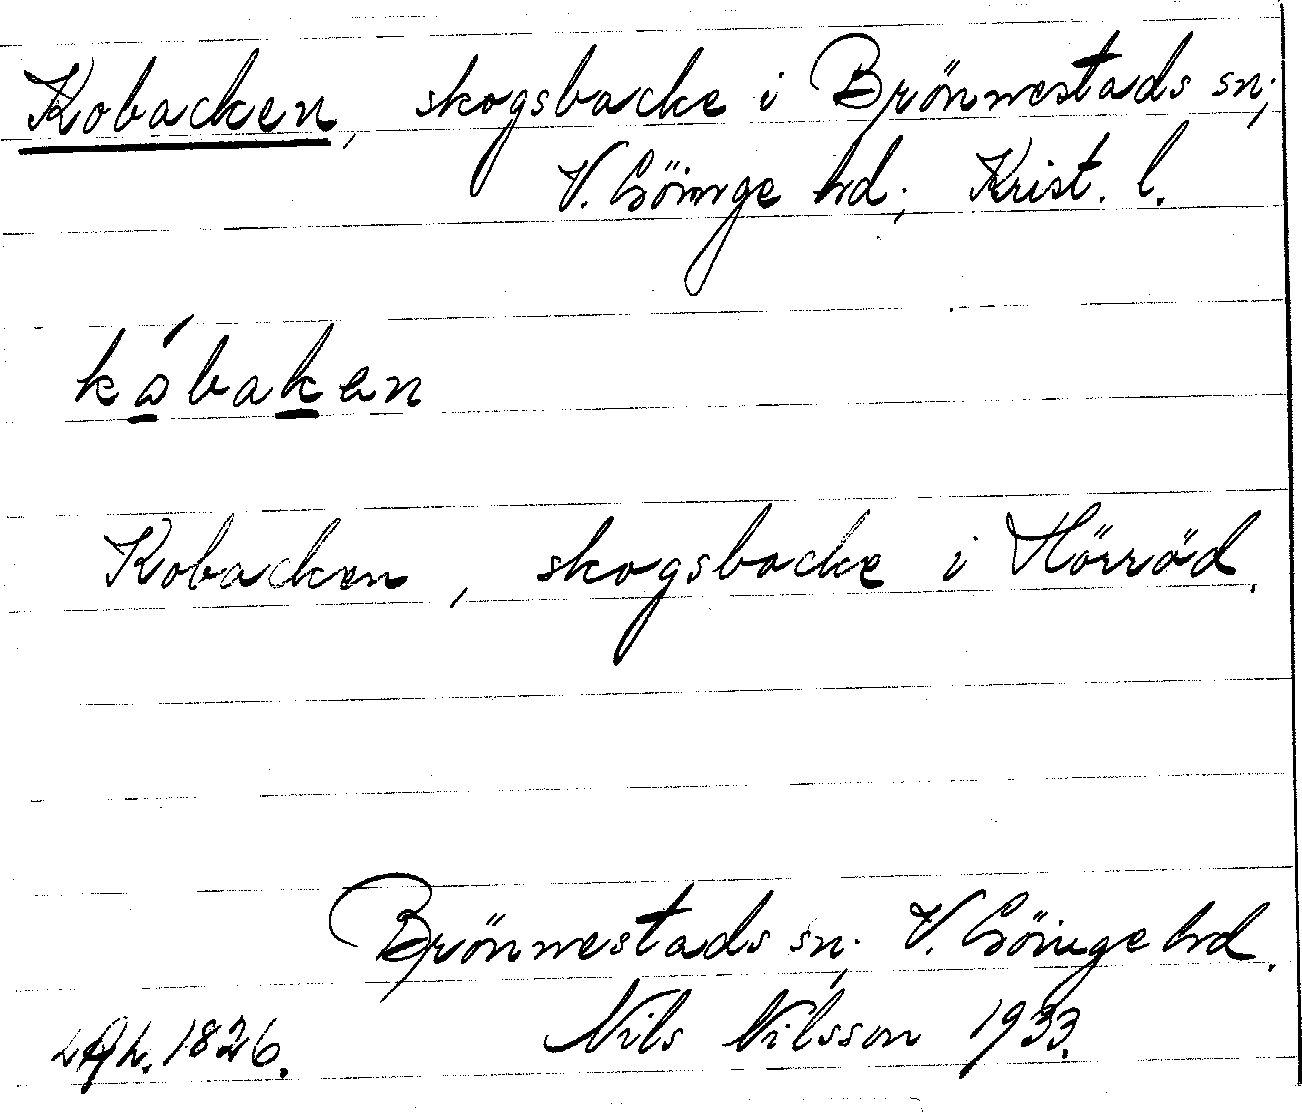 Kobacken, skogsbacke i Brönnestads sn;
V. Göinge hd; Krist. l.
kóbaken
Kobacken, skogsbacke i Hörröd.
Brönnestads sn; V. Göinge hd.
1826.
Nils Nilsson 1933.